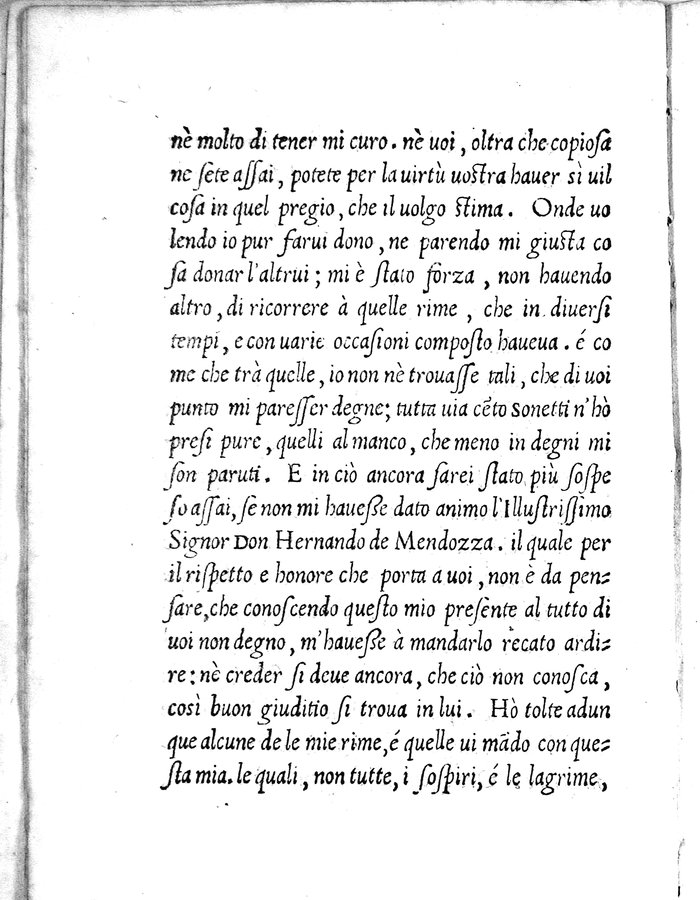 nè molto di tener mi curo. nè uoi, oltra che copiosa
ne sete assai, potete per la uirtù uostra hauer sì uil
cosa in quel pregio, che il uolgo stima. Onde uo
lendo io pur farui dono, ne parendo mi giusta co
sa donar l'altrui; mi è stato forza, non hauendo
altro, di ricorrere à quelle rime, che in diuersi
tempi, e con uarie occasioni composto haueua. é co
me che trà quelle, io non nè trouasse tali, che di uoi
punto mi paresser degne; tutta uia cẽto sonetti n'hò
presi pure, quelli al manco, che meno in degni mi
son paruti. E in ciò ancora sarei stato più sospe
so assai, se non mi hauesse dato animo l'Illustrissimo
Signor Don Hernando de Mendozza. il quale per
il rispetto e honore che porta a uoi, non è da pen-
sare, che conoscendo questo mio presente al tutto di
uoi non degno, m'hauesse à mandarlo recato ardi-
re: nè creder si deue ancora, che ciò non conosca,
così buon giuditio si troua in lui. Hò tolte adun
que alcune de le mie rime, é quelle ui mãdo con que-
sta mia. le quali, non tutte, i sospiri, é le lagrime,